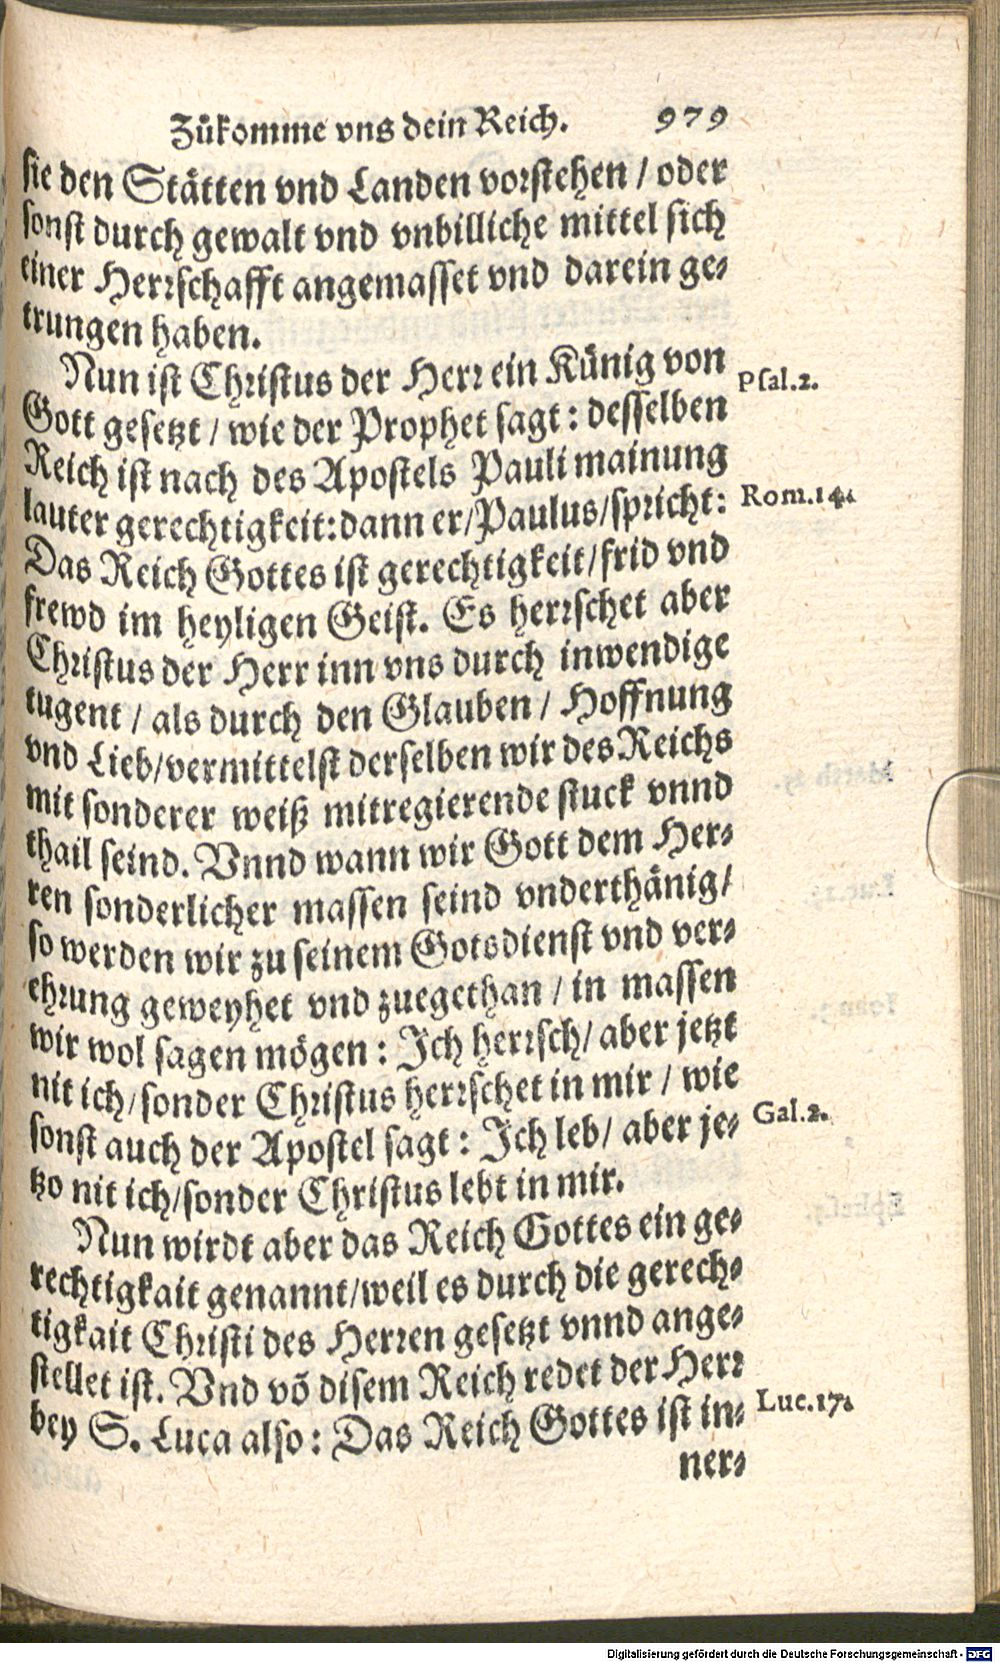 Zůkomme vns dein Reich. 979
sie den Stätten vnd Landen vorstehen / oder
sonst durch gewalt vnd vnbilliche mittel sich
einer Herrschafft angemasset vnd darein ge-
trungen haben.
Nun ist Christus der Herr ein Künig von Psal.2.
Gott gesetzt / wie der Prophet sagt: desselben
Reich ist nach des Apostels Pauli mainung
lauter gerechtigkeit: dann er/Paulus/spricht: Rom.14.
Das Reich Gottes ist gerechtigkeit/frid vnd
frewd im heyligen Geist. Es herrschet aber
Christus der Herr inn vns durch inwendige
tugent / als durch den Glauben / Hoffnung
vnd Lieb/vermittelst derselben wir des Reichs
mit sonderer weiß mitregierende stuck vnnd
thail seind. Vnnd wann wir Gott dem Her-
ren sonderlicher massen seind vnderthänig/
so werden wir zu seinem Gotsdienst vnd ver-
ehrung geweyhet vnd zuegethan / in massen
wir wol sagen mögen: Ich herrsch/ aber jetzt
nit ich/sonder Christus herrschet in mir / wie
sonst auch der Apostel sagt: Ich leb/ aber je- Gal.2.
tzo nit ich/sonder Christus lebt in mir.
Nun wirdt aber das Reich Gottes ein ge-
rechtigkait genannt/weil es durch die gerech-
tigkait Christi des Herren gesetzt vnnd ange-
stellet ist. Vnd võ disem Reich redet der Herr
bey S. Luca also: Das Reich Gottes ist in- Luc.17.
ner-
Digitalisierung gefördert durch die Deutsche Forschungsgemeinschaft - DFG